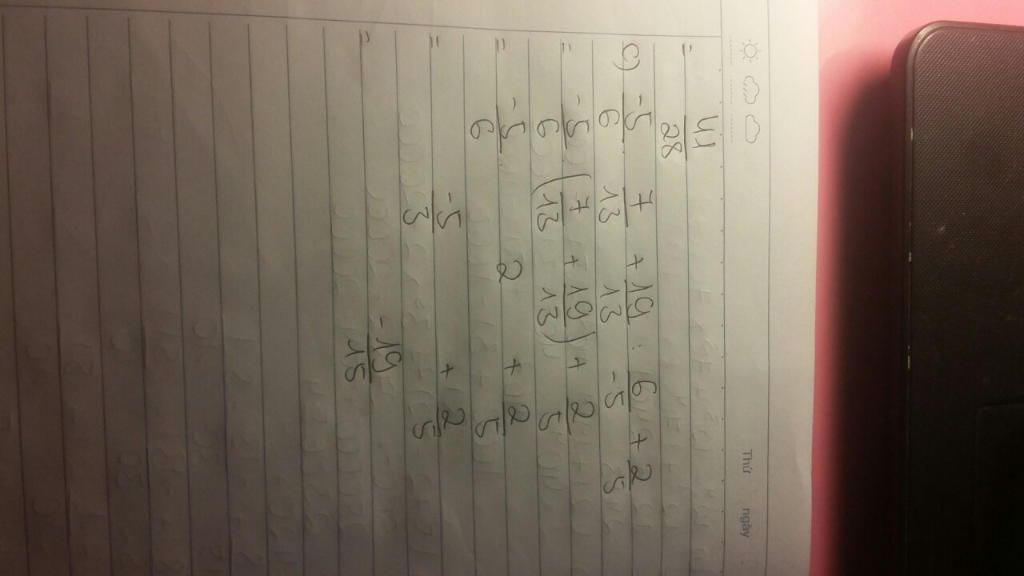 Thứ ngày
= 41/28
c) -5/6 . 7/13 + 19/13 : 6/-5 + 2/5
= -5/6 (7/13 + 19/13) + 2/5
= -5/6 . 2 + 2/5
= -5/3 + 2/5
= -19/15